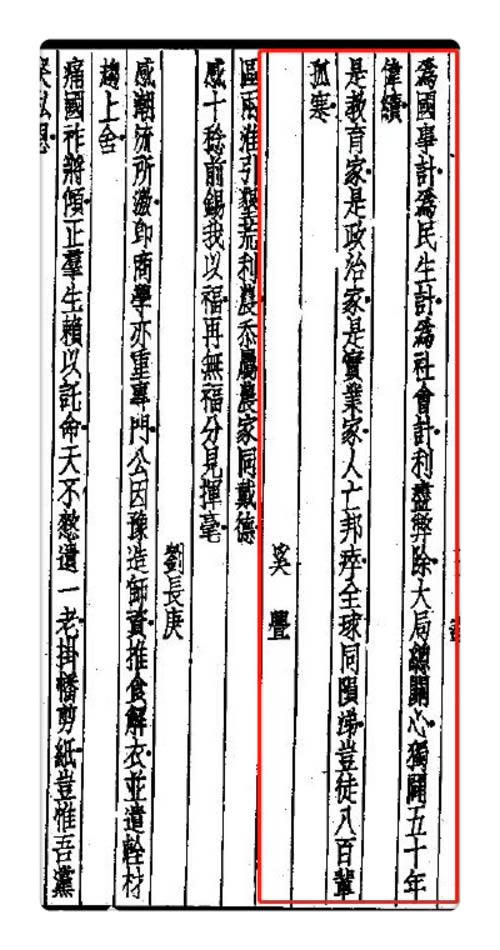 為國事計為民生計為社會計利盡弊除大局總關心獨闢五十年
偉績
是教育家是政治家是實業家人亡邦瘁全球同隕涕豈徒八百輩
孤寒
奚
區兩淮引墾荒利農忝屬農家同戴德
感十稔前錫我以福再無福分見揮毫
劉長庚
感潮流所激卽商學亦重專門公因豫造師資推食解衣並遣輇材
趨上舍
痛國祚將傾正羣生賴以託命天不憖遺一老掛旛剪紙豈惟吾黨
哭私恩